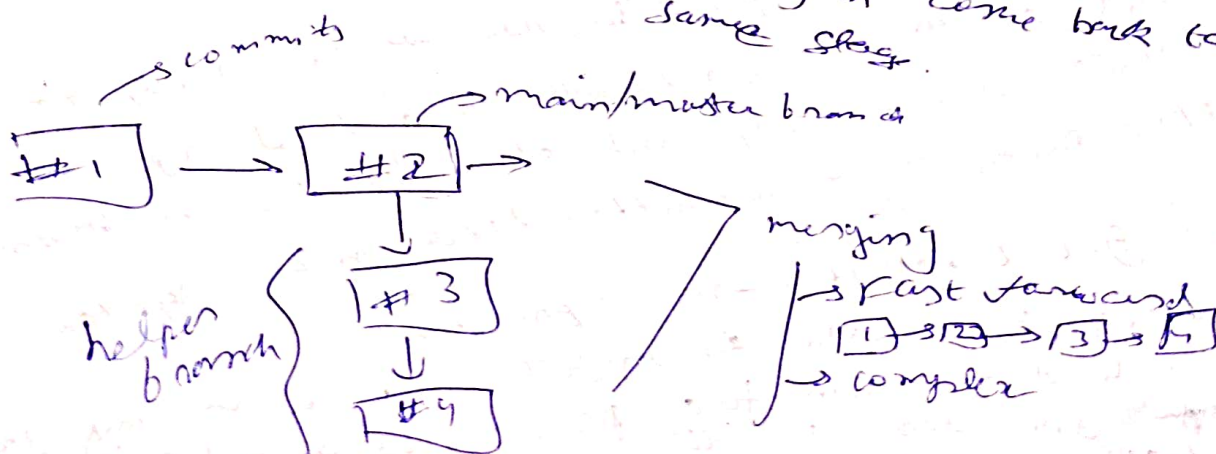 come back to
same stag.
commits
main/master branch
#1
#2
#3
#4
helper
branch
merging
→ Fast forward
1 → 2 → 3 → 4
→ complex